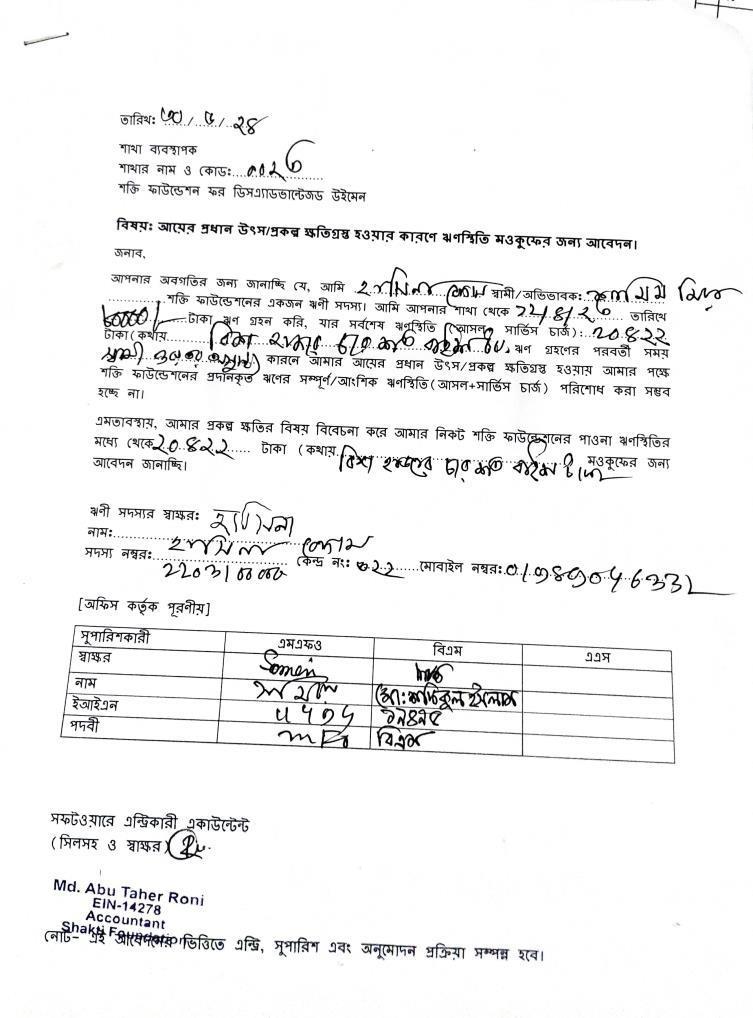 তারিখঃ ৩০/৫/২৪
শাখা ব্যবস্থাপক
শাখার নাম ও কোডঃ....০০২৩
শক্তি ফাউন্ডেশন ফর ডিসএ্যাডভান্টেজড উইমেন
বিষয়ঃ আয়ের প্রধান উৎস/প্রকল্প ক্ষতিগ্রস্থ হওয়ার কারণে ঋণস্থিতি মওকুফের জন্য আবেদন।
জনাব,
আপনার অবগতির জন্য জানাচ্ছি যে, আমি হাসিনা বেগম স্বামী/অভিভাবক:
শক্তি ফাউন্ডেশনের একজন ঋনী সদস্য। আমি আপনার শাখা থেকে তারিখে
60000/- টাকা ঋণ গ্রহন করি, যার সর্বশেষ ঋণস্থিতি (আসল+ সার্ভিস চার্জ): ২০৪২২
টাকা(কথায় বিশ হাজার চার শত বাইশ টাকা, ঋণ গ্রহণের পরবর্তী সময়
কারনে আমার আয়ের প্রধান উৎস/প্রকল্প ক্ষতিগ্রস্থ হওয়ায় আমার পক্ষে
শক্তি ফাউন্ডেশনের প্রদানকৃত ঋণের সম্পূর্ণ/আংশিক ঋণস্থিতি(আসল+সার্ভিস চার্জ) পরিশোধ করা সম্ভব
হচ্ছে না।
এমতাবস্থায়, আমার প্রকল্প ক্ষতির বিষয় বিবেচনা করে আমার নিকট শক্তি ফাউন্ডেশনের পাওনা ঋণস্থিতির
মধ্যে থেকে ২০৪২২ টাকা (কথায় বিশ হাজার চার শত বাইশ টাকা মওকুফের জন্য
আবেদন জানাচ্ছি।
ঋণী সদস্যর স্বাক্ষরঃ হাসিনা
নাম: হাসিনা বেগম
সদস্য নম্বরঃ কেন্দ্র নং: ০২২ মোবাইল নম্বরঃ
[অফিস কর্তৃক পূরণীয়]
সুপারিশকারী এমএফও বিএম এএস
স্বাক্ষর
নাম মোঃ শফিকুল ইসলাম
ইআইএন
পদবী বিএম
সফটওয়ারে এন্ট্রিকারী একাউন্টেন্ট
(সিলসহ ও স্বাক্ষর)
Md. Abu Taher Roni
EIN-14278
Accountant
Shakti Foundation
নোট- এই আবেদনের ভিত্তিতে এন্ট্রি, সুপারিশ এবং অনুমোদন প্রক্রিয়া সম্পন্ন হবে।